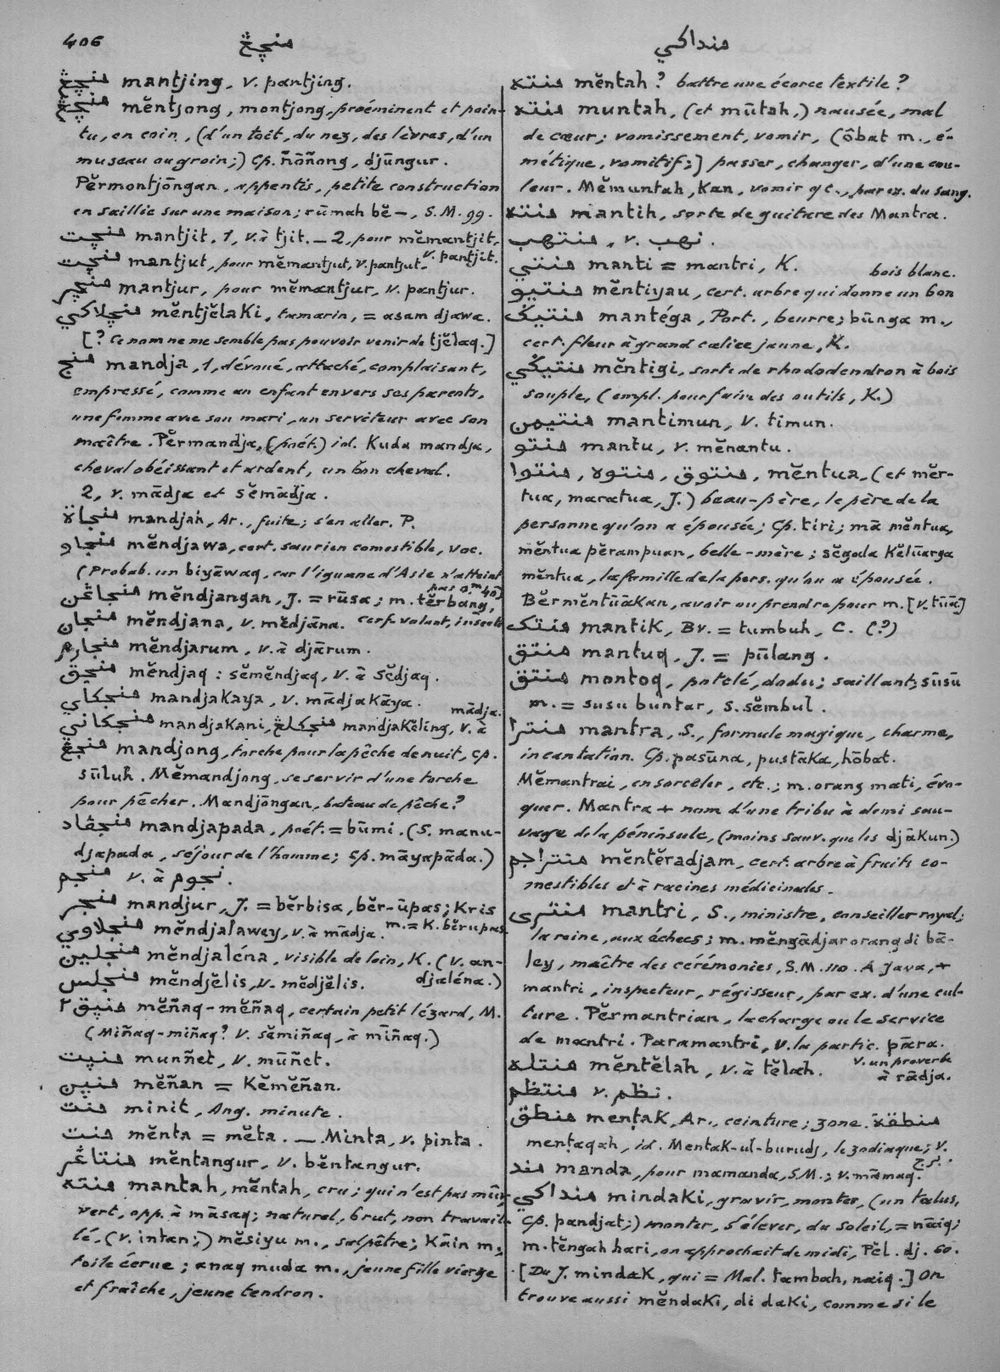 406 منچڠ منداكي
منچڠ mantjing, v. pantjing.
منچڠ mĕntjong, montjong, proéminent et poin-
tu, en coin, (d'un toit, du nez, des lèvres, d'un
museau ou groin;) Cp. ñoñong, djūngur.
Pĕrmontjōngan, appentis, petite construction
en saillie sur une maison; rūmah bĕ—, S.M. 99.
منچت mantjit, 1, v. à tjit. — 2, pour mĕmantjit,
v. pantjit.
منچت mantjut, pour mĕmantjut, v. pantjut.
منچر mantjur, pour mĕmantjur, v. pantjur.
منچلاكي mĕntjĕlaki, tamarin, = asam djawa.
[? Ce nom ne me semble pas pouvoir venir de tjĕlaq.]
منج mandja, 1, dévoué, attaché, complaisant,
empressé, comme un enfant envers ses parents,
une femme avec son mari, un serviteur avec son
maître. Pĕrmandja, (poét.) id. Kuda mandja,
cheval obéissant et ardent, un bon cheval.
2, v. mādja et sĕmādja.
منجاة mandjah, Ar., fuite; s'en aller. P.
منجاو mĕndjawa, cert. saurien comestible, voc.
(Probab. un biyāwaq, car l'iguane d'Asie n'atteint
pas 0.m 40)
منجاڠن mĕndjangan, J. = rūsa; m. tĕrbang,
cerf volant, insecte
منجان mĕndjana, v. mĕdjāna.
منجارم mĕndjarum, v. à djārum.
منجق mĕndjaq : sĕmĕndjaq, v. à sĕdjaq.
منجكاي mandjakaya, v. mādjakāya.
منجكاني mandjakani, منجكلڠ mandjakĕling, v. à
mādja.
منجڠ mandjong, torche pour la pêche de nuit, Cp.
sūluh. Mĕmandjong, se servir d'une torche
pour pêcher. Mandjōngan, bateau de pêche?
منجڤاد mandjapada, poét. = būmi. (S. manu-
djapada, séjour de l'homme; Cp. māyapāda.)
منجم v. à نجوم.
منجر mandjur, J. = bĕrbisa, bĕr-ūpas; Kris
m. = K. bĕrupas.
منجلاوي mĕndjalawey, v. à mādja.
منجلين mĕndjaléna, visible de loin, K. (v. an-
djaléna.)
منجلس mĕndjĕlis, v. mĕdjĕlis.
منيق٢ mĕñaq-mĕñaq, certain petit lézard, M.
(Miñaq-miñaq? v. sĕmiñaq, à mīñaq.)
منيت munñet, v. mūñet.
منين mĕñan = Kĕmĕñan.
منت minit, Ang. minute.
منت mĕnta = mĕta. — Minta, v. pinta.
منتاڠر mĕntangur, v. bĕntangur.
منته mantah, mĕntah, cru; qui n'est pas mûr,
vert, opp. à māsaq; naturel, brut, non travail-
lé. (v. intan;) mĕsiyu m., salpêtre; Kāin m.,
toile écrue; anaq muda m., jeune fille vierge
et fraîche, jeune tendron.
منته mĕntah? battre une écorce textile?
منته muntah, (et mūtah,) nausée, mal
de cœur; vomissement, vomir, (ōbat m., é-
métique, vomitif;) passer, changer, d'une cou-
leur. Mĕmuntah, Kan, vomir qc., par ex. du sang.
منته mantih, sorte de guitare des Mantra.
منتهب, v. نهب.
منتي manti = mantri, K.
bois blanc.
منتيو mĕntiyau, cert. arbre qui donne un bon
منتيݢ mantéga, Port., beurre; būnga m.,
cert. fleur à grand calice jaune, K.
منتيݢي mĕntigi, sorte de rhododendron à bois
souple, (empl. pour faire des outils, K.)
منتيمن mantimun, v. timun.
منتو mantu, v. mĕnantu.
منتوق, منتوه, منتوا, mĕntua, (et mĕr-
tua, maratua, J.) beau-père, le père de la
personne qu'on a épousée; Cp. tiri; mā mĕntua,
mĕntua pĕrampuan, belle-mère; sĕgala kĕlūarga
mĕntua, la famille de la pers. qu'on a épousée.
Bĕrmĕntūākan, avoir ou prendre pour m. [v. tūā]
منتك mantik, Bv. = tumbuh, C. (?)
منتق mantuq, J. = pūlang.
منتق montoq, potelé, dodu; saillant; sūsū
m. = susu buntar, S. sĕmbul.
منترا mantra, S., formule magique, charme,
incantation. Cp. pasūna, pustāka, hōbat.
Mĕmantrai, ensorceler, etc.; m. orang mati, évo-
quer. Mantra + nom d'une tribu à demi sau-
vage de la péninsule, (moins sauv. que les djākun.)
منتراجم mĕntĕradjam, cert. arbre à fruits co-
mestibles et à racines médicinales.
منترى mantri, S., ministre, conseiller royal;
la reine, aux échecs; m. mĕngādjar orang di bā-
ley, maître des cérémonies, S.M. 110. A Java, +
mantri, inspecteur, régisseur, par ex. d'une cul-
ture. Pĕrmantrian, la charge ou le service
de mantri. Paramantri, v. la partic. pāra.
منتله mĕntĕlah, v. à tĕlah.
v. un proverbe
à rādja.
منتظم v. نظم.
منطق menṭak, Ar., ceinture; zone. منطقة
menṭaqah, id. Mentak-ul-burudj, le zodiaque; v.
برج.
مند manda, pour mamanda, S.M.; v. māmaq.
منداكي mindaki, gravir, monter, (un talus,
Cp. pandjat;) monter, s'élever, du soleil, = nāiq;
m. tĕngah hari, on approchait de midi, Pĕl. dj. 60.
[Du J. mindak, qui = Mal. tambah, naiq.] On
trouve aussi mĕndaki, di daki, comme si le